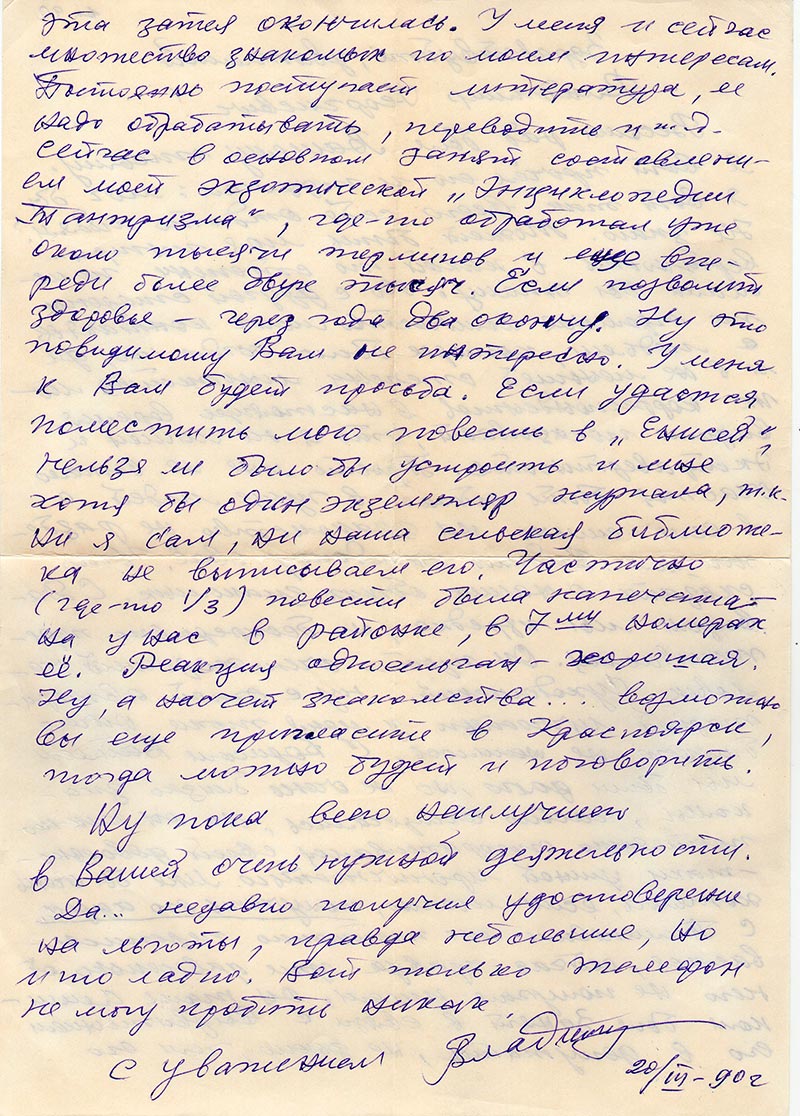 эта затея окончилась. У меня и сейчас
множество знакомых по моим интересам.
Постоянно поступает литература, ее
надо обрабатывать, переводить и т.д.
Сейчас в основном занят составлени-
ем моей экзотической „Энциклопедии
Тантризма", где-то обработал уже
около тысячи терминов и еще впе-
реди более двух тысяч. Если позволит
здоровье – через года два окончу. Ну это
повидимому Вам не интересно. У меня
к Вам будет просьба. Если удастся
поместить мою повесть в „Енисей",
нельзя ли было бы устроить и мне
хотя бы один экземпляр журнала, т.к.
ни я сам, ни наша сельская библиоте-
ка не выписываем его. Частично
(где-то 1/3) повести была напечата-
на у нас в районке, в 7ми номерах
её. Реакция односельчан – хорошая.
Ну, а насчет знакомства... возможно
вы еще пригласите в Красноярск,
тогда можно будет и поговорить.
Ну пока всего наилучшего
в Вашей очень нужной деятельности.
Да... недавно получил удостоверение
на льготы, правда небольшие, но
и то ладно. Вот только телефон
не могу пробить никак.
С уважением
20/III – 90г